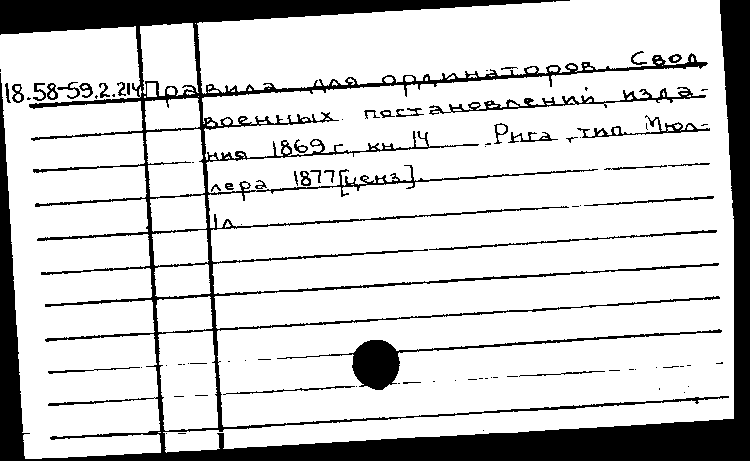 18.58-59.2.214 Правила для ординаторов. Свод
военных постановлений, изда-
ния 1869 г., кн. 14 Рига, тип. Мюл-
лера, 1877 [ценз].
1л